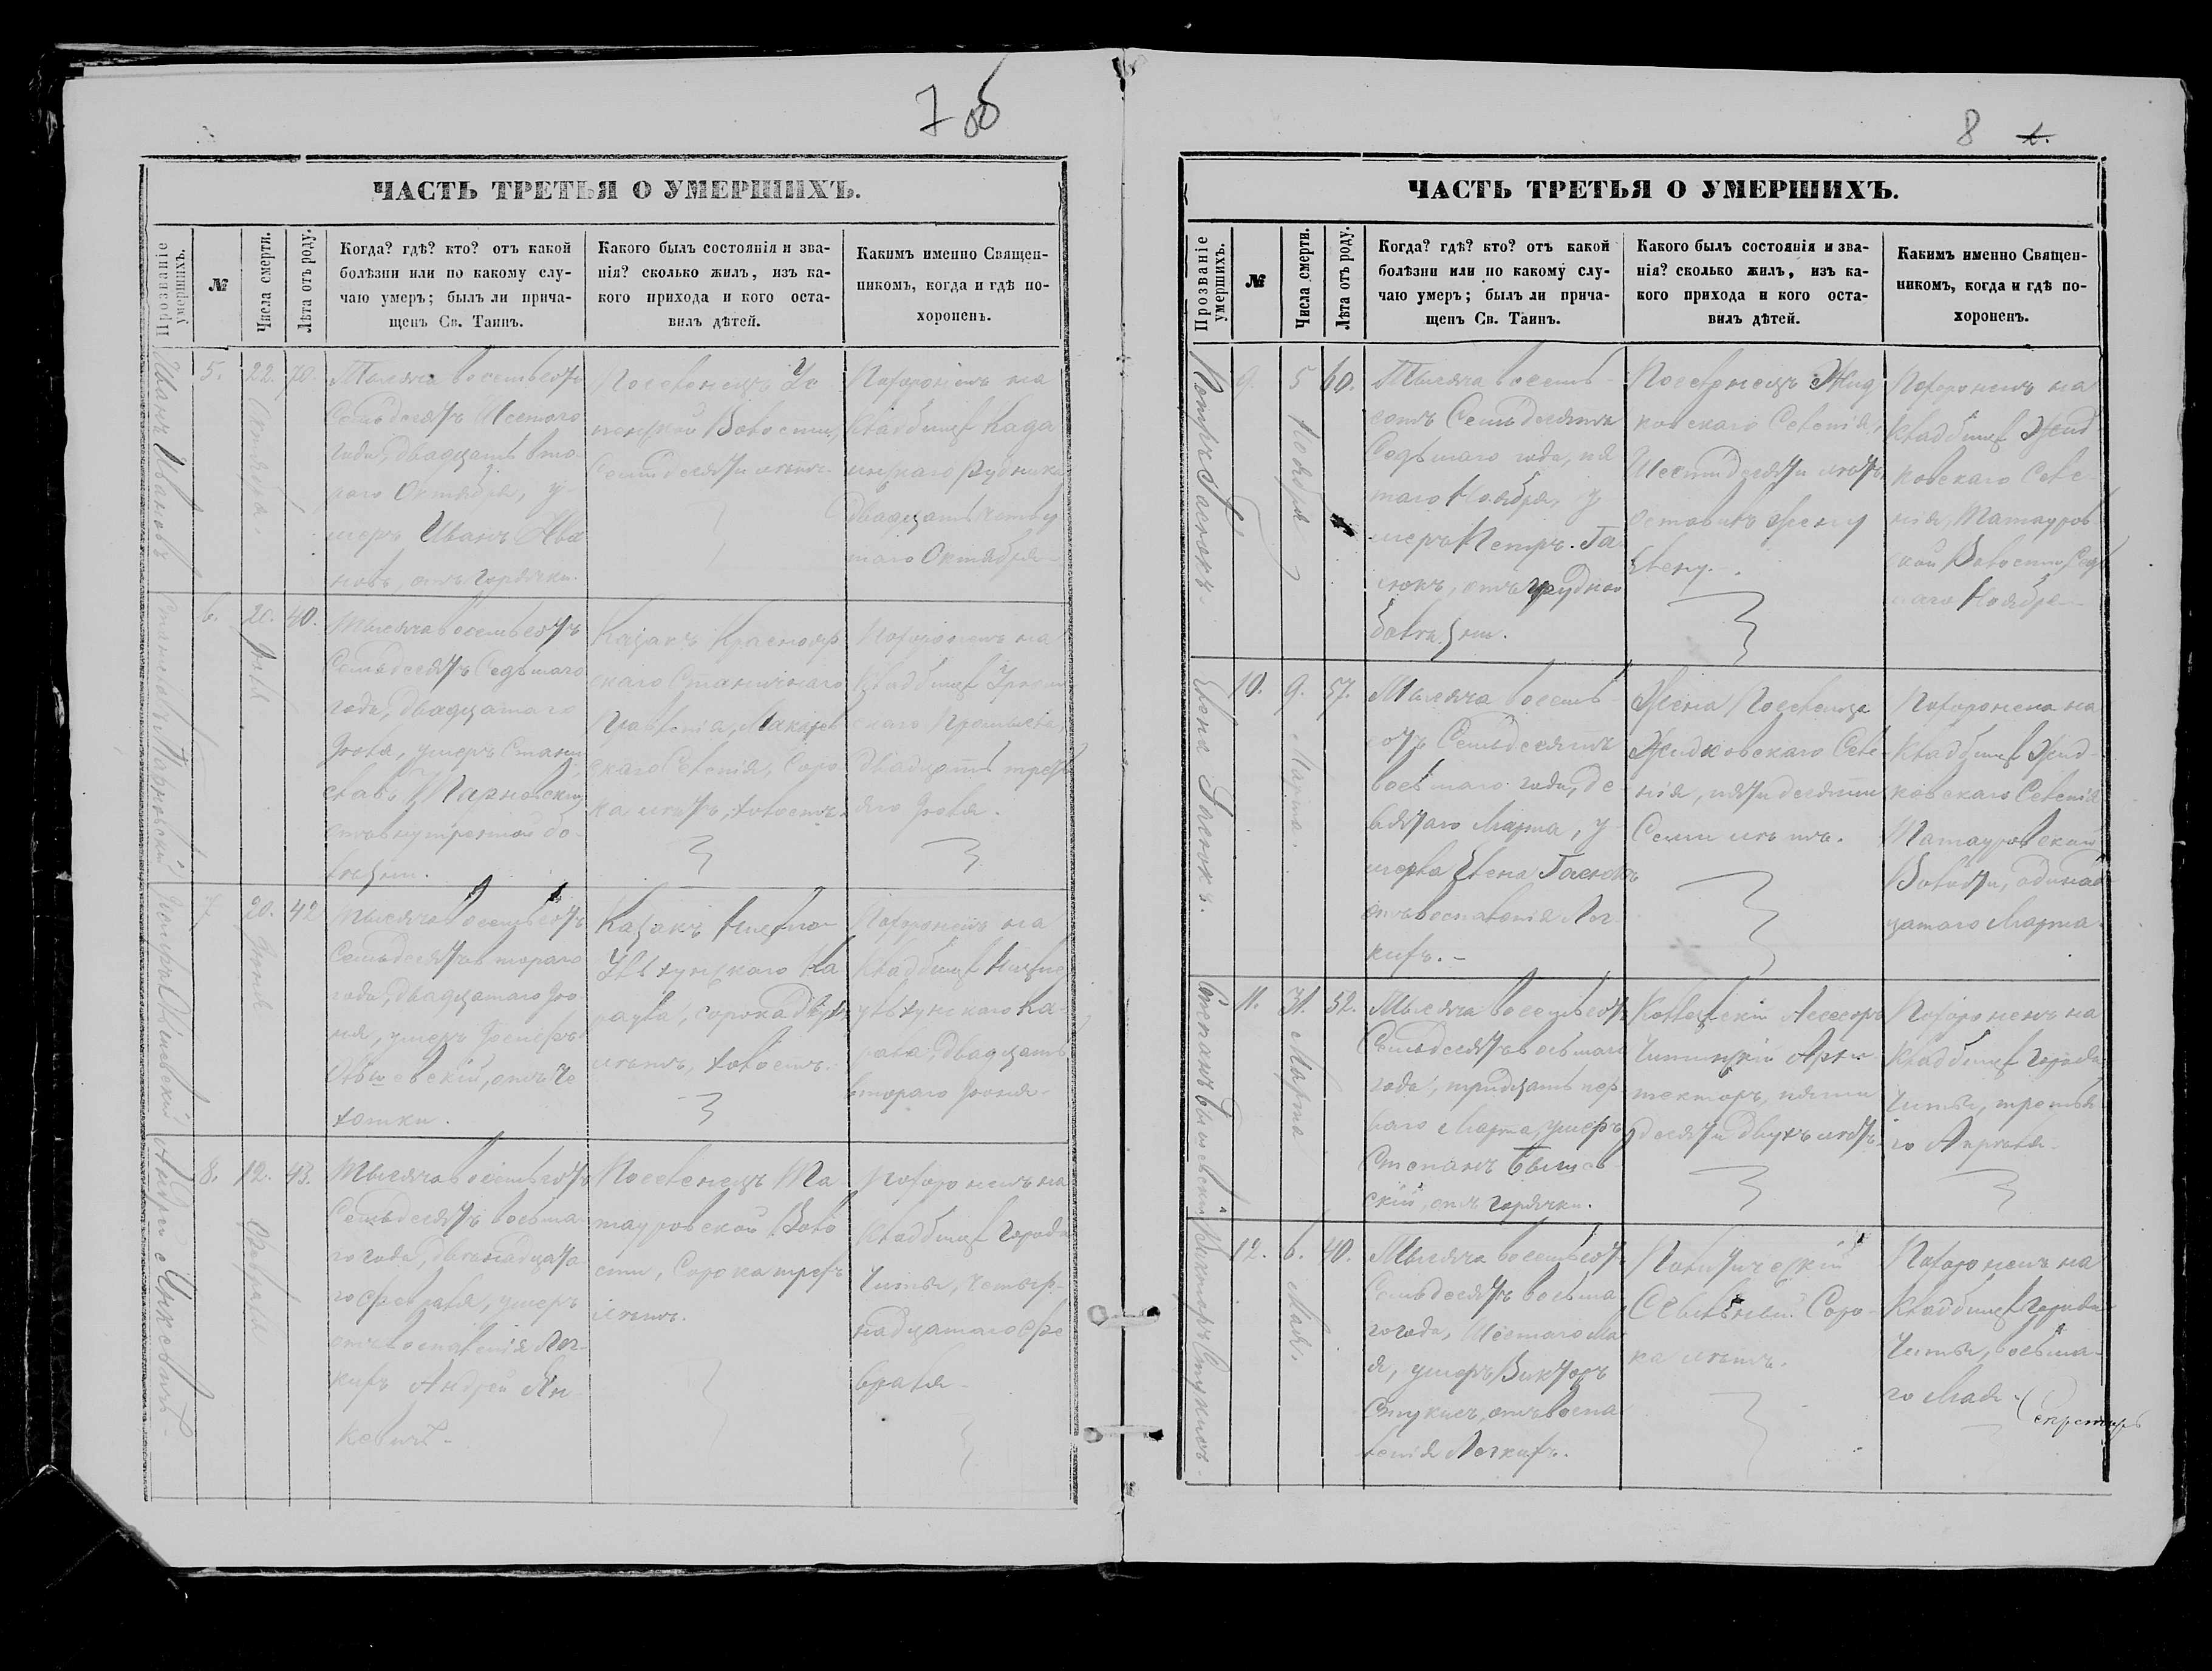 7 об
ЧАСТЬ ТРЕТЬЯ О УМЕРШИХЪ.
Прозваніе умершихъ.
№
Числа смерти.
Лѣта отъ роду.
Когда? гдѣ? кто? отъ какой
болѣзни или по какому слу-
чаю умеръ; былъ ли прича-
щенъ Св. Таинъ.
Какого былъ состоянія и зва-
нія? сколько жилъ, изъ ка-
кого прихода и кого оста-
вилъ дѣтей.
Какимъ именно Священ-
никомъ, когда и гдѣ по-
хороненъ.
Иванъ Ивановъ
5.
22. Октября.
70.
Тысяча восемьсотъ
Семьдесятъ Шестого
года, двадцать вто-
рого Октября, у-
меръ Иванъ Ива
новъ, отъ горячки.
Поселенецъ
Волости,
Семидесяти лѣтъ.
Похороненъ на
кладбищѣ Када
инскаго Рудника
двадцать четвер
таго Октября
Станиславъ Тарновскій
6.
20. Іюля
40.
Тысяча восемьсотъ
Семьдесятъ Седьмаго
года, двадцатаго
Іюля, умеръ Стани
славъ Тарновскій
отъ внутренной бо
лѣзни.
Казакъ Краснояр
скаго Станичнаго
Правленія,
скаго Селенія, Соро
ка лѣтъ, холостъ.
Похороненъ на
кладбищѣ
скаго Промысла,
двадцать треть
яго Іюля.
Іосифъ Ольшевскій
7.
20. Іюня
42
Тысяча восемьсотъ
Семьдесятъ втораго
года, двадцатаго Ію-
ня, умеръ Іосифъ
Ольшевскій, отъ Ча
хотки.
Казакъ Нижне
Ульхунскаго Ка
раула, сорока двухъ
лѣтъ, холостъ.
Похороненъ на
кладбищѣ Нижне
ульхунскаго Ка-
раула, двадцать
втораго Іюня.
Андрей Янкевичъ
8.
12. Февраля
43.
Тысяча восемьсотъ
Семьдесятъ восьма-
го года, двѣнадцата-
го Февраля, умеръ
отъ воспаленія Лег-
кихъ Андрей Ян-
кевичъ.
Поселенецъ Та-
тауровской Воло
сти, Сорока трехъ
лѣтъ.
Похороненъ на
кладбищѣ города
Читы, четыр-
надцатаго Фе
враля.
8
ЧАСТЬ ТРЕТЬЯ О УМЕРШИХЪ.
Прозваніе умершихъ.
№
Числа смерти.
Лѣта отъ роду.
Когда? гдѣ? кто? отъ какой
болѣзни или по какому слу-
чаю умеръ; былъ ли прича-
щенъ Св. Таинъ.
Какого былъ состоянія и зва-
нія? сколько жилъ, изъ ка-
кого прихода и кого оста-
вилъ дѣтей.
Какимъ именно Священ-
никомъ, когда и гдѣ по-
хороненъ.
Петръ Гаснюкъ.
9.
5 Ноября
60.
Тысяча восемь-
сотъ Семьдесятъ
Седьмаго года, пя
таго Ноября, у
меръ Петръ Га-
снюкъ, отъ грудной
болѣзни.
Поселенецъ Жид
ковскаго Селенія,
Шестидесяти лѣтъ
оставилъ жену
Елену.
Похороненъ на
кладбищѣ Жид
ковскаго Селе-
нія, Татауров
ской Волости Седь
маго Ноября
Елена Гаснюкъ.
10.
9. Марта.
57.
Тысяча восемь-
сотъ Семьдесятъ
восьмаго года, де-
вятаго Марта, у
мерла Елена Гаснюкъ
отъ воспаленія Лег-
кихъ.
Жена Поселенца
Жидковскаго Селе-
нія, пятидесяти
Семи лѣтъ.
Похоронена на
кладбищѣ Жид-
ковскаго Селенія
Татауровской
Волости, одинад
цатаго Марта.
11.
31. Марта
52.
Тысяча восемьсотъ
Семьдесятъ восьмаго
года, тридцать пер
ваго Марта, умеръ
Степанъ
скій, отъ горячки.
Коллежскій Ассесоръ
Читинскій Архи
текторъ, пяти
десяти двухъ лѣтъ.
Похороненъ на
кладбищѣ города
Читы, третья-
го Апрѣля.
12.
6. Мая.
40.
Тысяча восемьсотъ
Семьдесятъ восьма
го года, Шестаго Ма
я, умеръ Викторъ
отъ воспа
ленія Легкихъ.
Политическій
Ссыльный Соро-
ка лѣтъ.
Похороненъ на
кладбищѣ города
Читы, восьма-
го Мая.
Секретарь